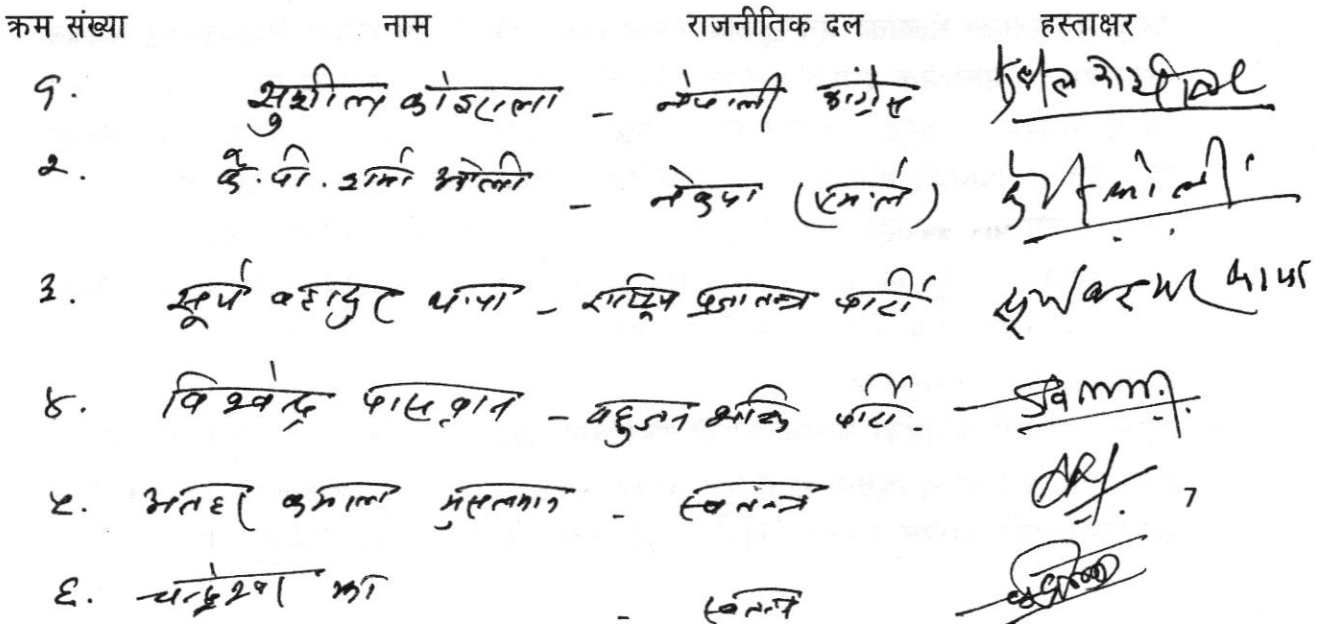 क्रम संख्या नाम राजनीतिक दल हस्ताक्षर
१. सुशील कोइराला - नेपाली कांग्रेस सुशील कोइराला
२. के.पी. शर्मा ओली - नेकपा (एमाले) के पी ओली
३. सूर्य बहादुर थापा - राष्ट्रिय प्रजातन्त्र पार्टी सूर्य बहादुर थापा
४. विश्वेन्द्र पासवान - बहुजन शक्ति पार्टी
५. अतहर कमाल मुसलमान - स्वतन्त्र
६. चन्द्रेश्वर झा - स्वतन्त्र